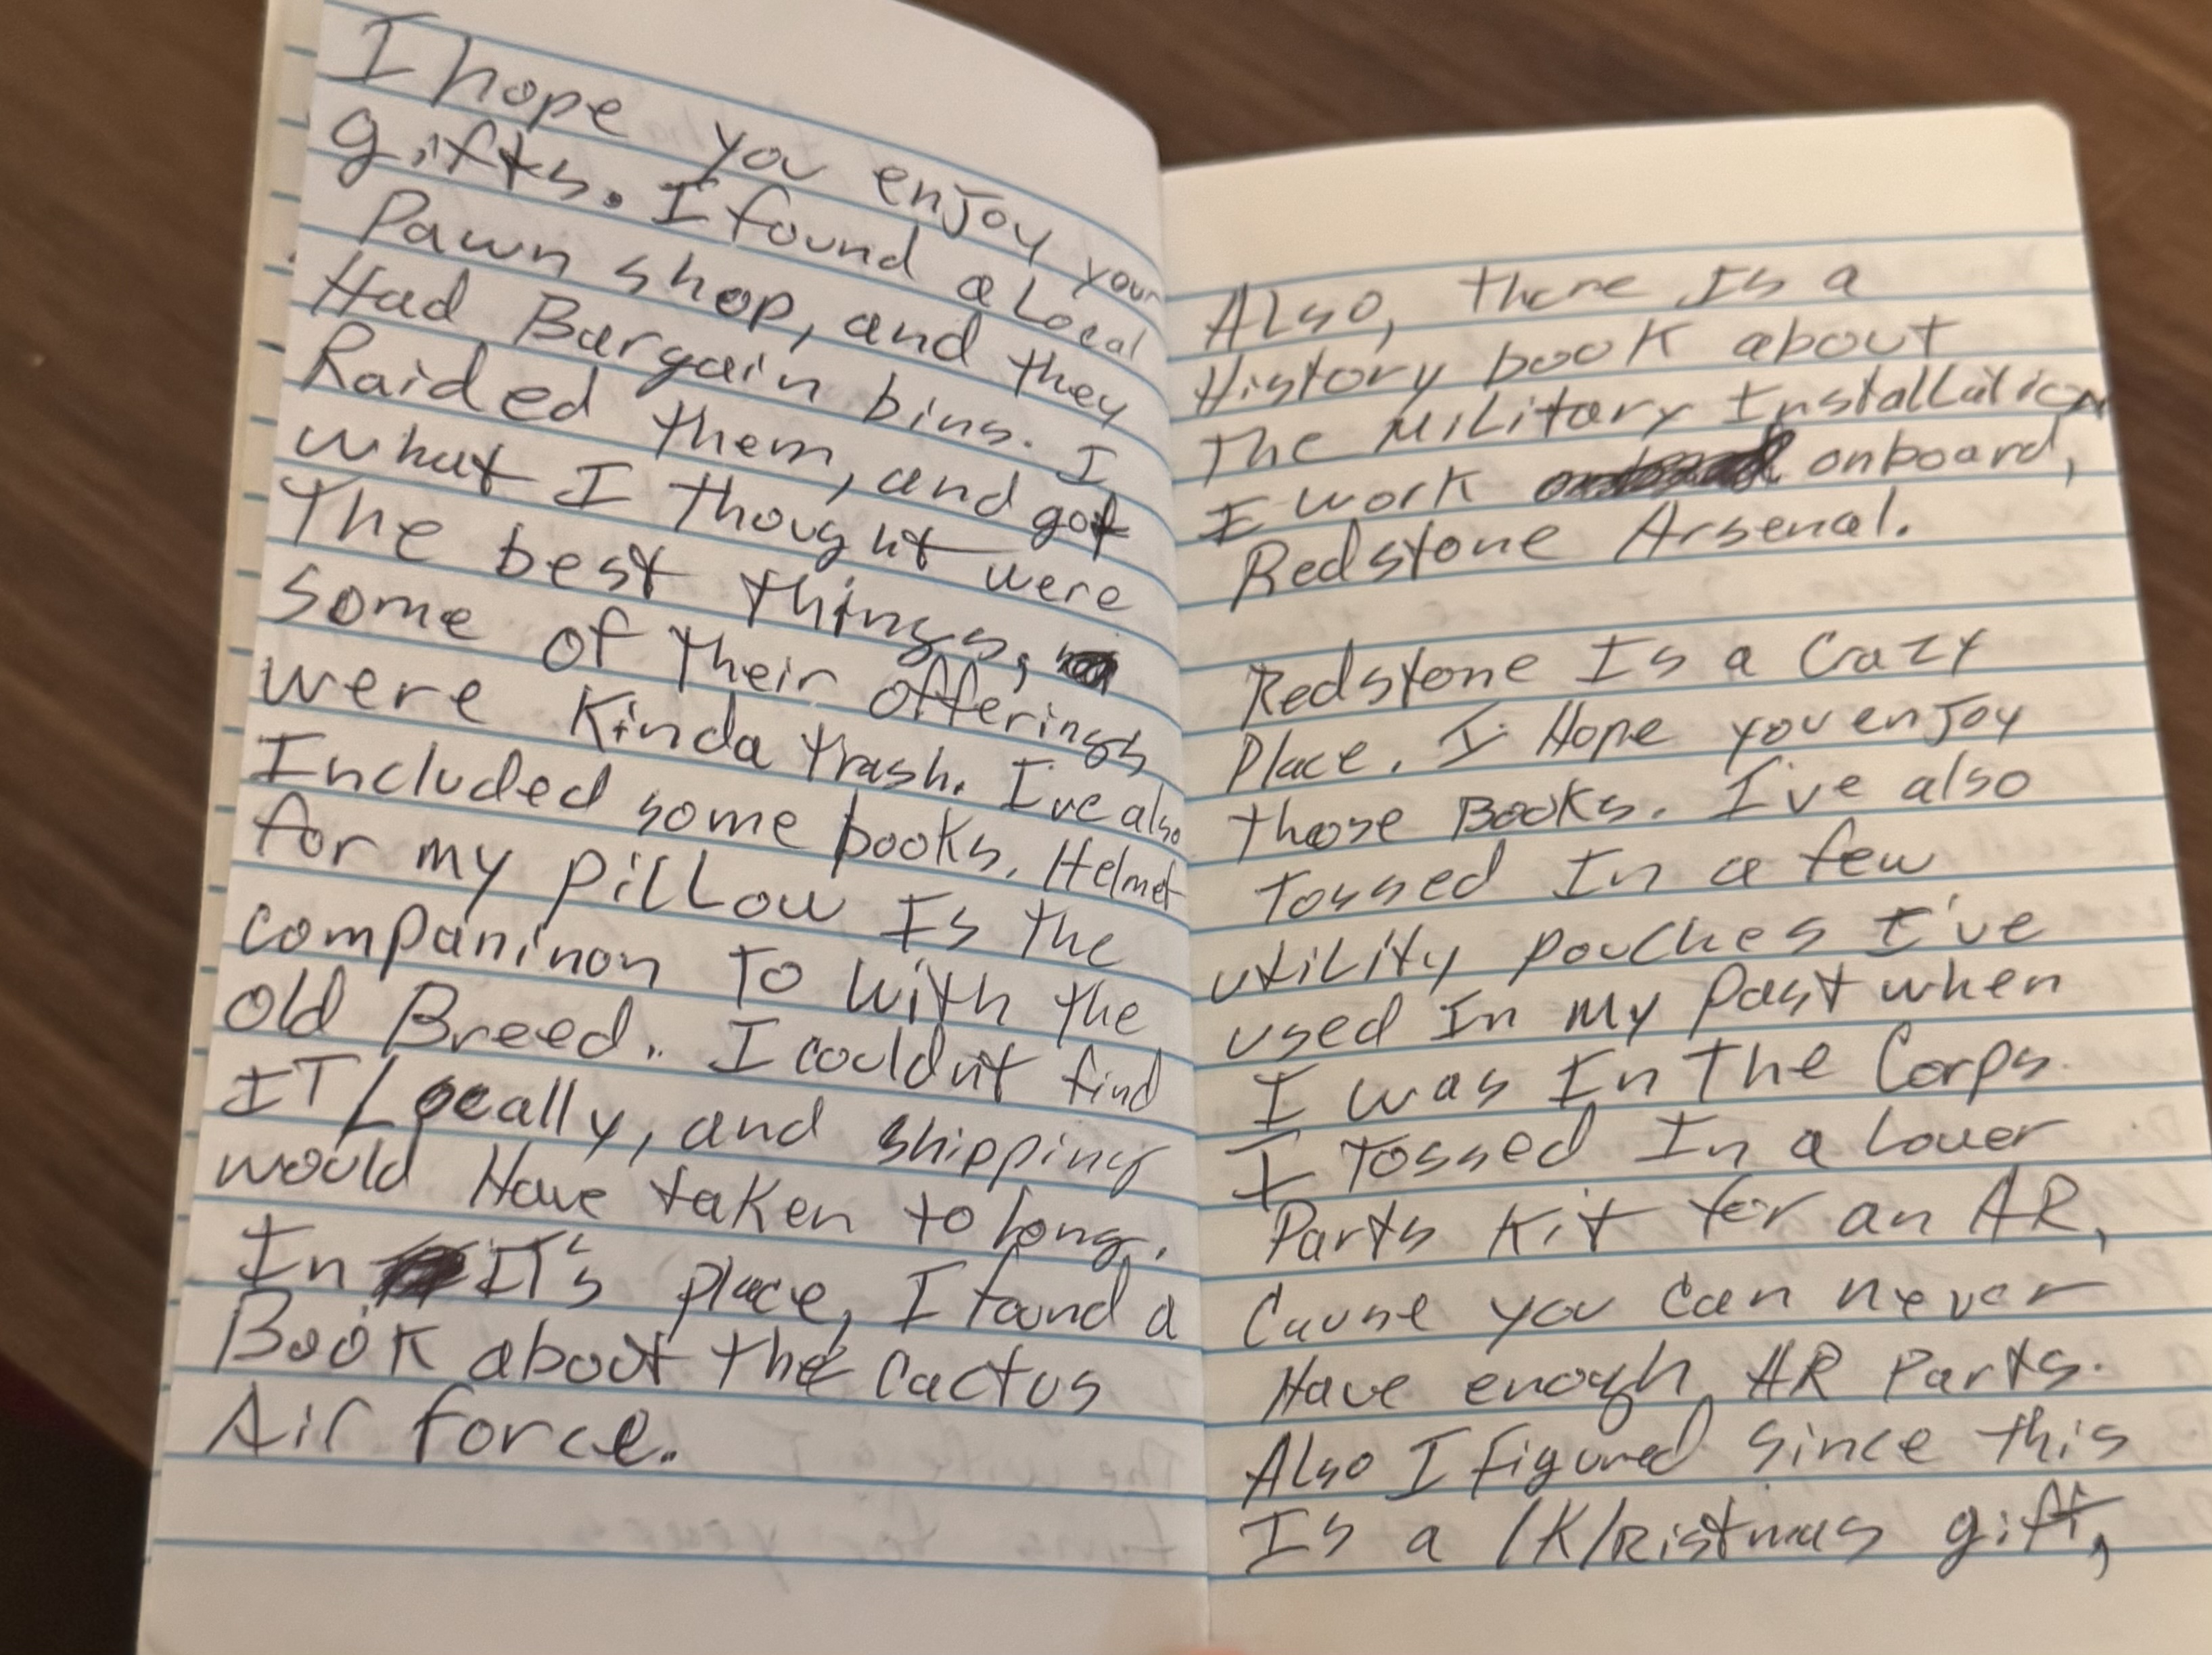 I hope you enjoy your
gifts. I found a Local
Pawn shop, and they
Had Bargain bins. I
Raided them, and got
what I thought were
The best things,
some of their offerings
were Kinda trash. I've also
Included some books. Helmet
for my pillow Is the
companinon To With the
Old Breed. I couldn't find
IT Locally, and shipping
would Have taken to long.
In IT's place, I found a
Book about the Cactus
Air force.
Also, there Is a
History book about
The Military Installation
I work onboard,
Redstone Arsenal.
Redstone Is a Crazy
Place. I Hope you enjoy
those Books. I've also
Tossed In a few
utility pouches I've
used In my past when
I was In The Corps.
I Tossed In a Lower
Parts Kit for an AR,
Cause you can never
Have enough AR Parts.
Also I figured since this
Is a /K/Ristmas gift,